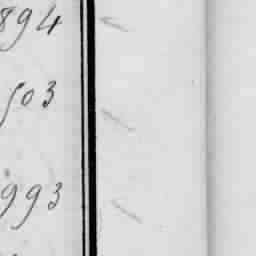 894
503
993